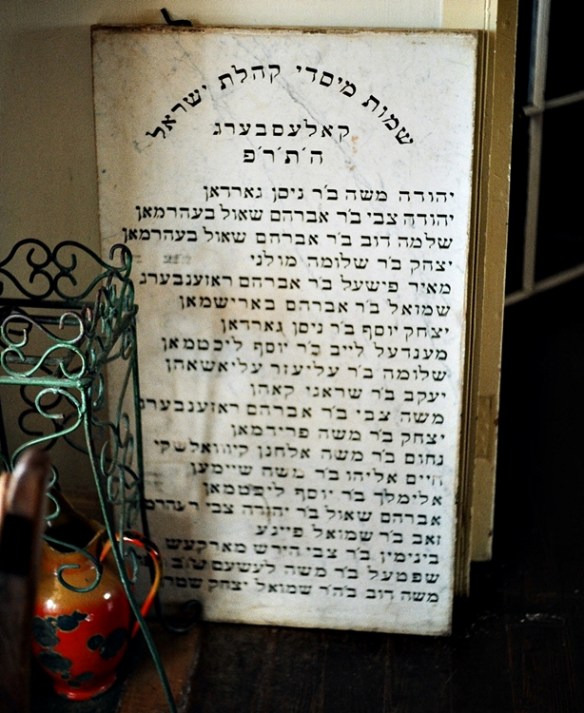 שמות מיסדי קהלת ישראל
קאלעסבערג
ה׳ת׳ר׳פ
יהודה משה ב׳ר ניסן גארדאן
יהודה צבי ב׳ר אברהם שאול בעהרמאן
שלמה דוב ב׳ר אברהם שאול בעהרמאן
יצחק ב׳ר שלומה מולני
מאיר פישעל ב׳ר אברהם ראזענבערג
שמואל ב׳ר אברהם בארישמאן
יצחק יוסף ב׳ר ניסן גארדאן
מענדעל לייב ב׳ר יוסף ליכטמאן
שלומה ב׳ר עליעזר עליאשאהן
יעקב ב׳ר שראני קאהן
משה צבי ב׳ר אברהם ראזענבערג
יצחק ב׳ר משה פרידמאן
נחום ב׳ר משה אלחנן
חיים אליהו ב׳ר משה שיימען
אלימלך ב׳ר יוסף ליפטמאן
אברהם שאול ב׳ר יהודה צבי
זאב ב׳ר שמואל פיינע
בינימין ב׳ר צבי הירש מארקעש
שפטעל ב׳ר משה
משה דוב ב׳ה׳ר שמואל יצחק